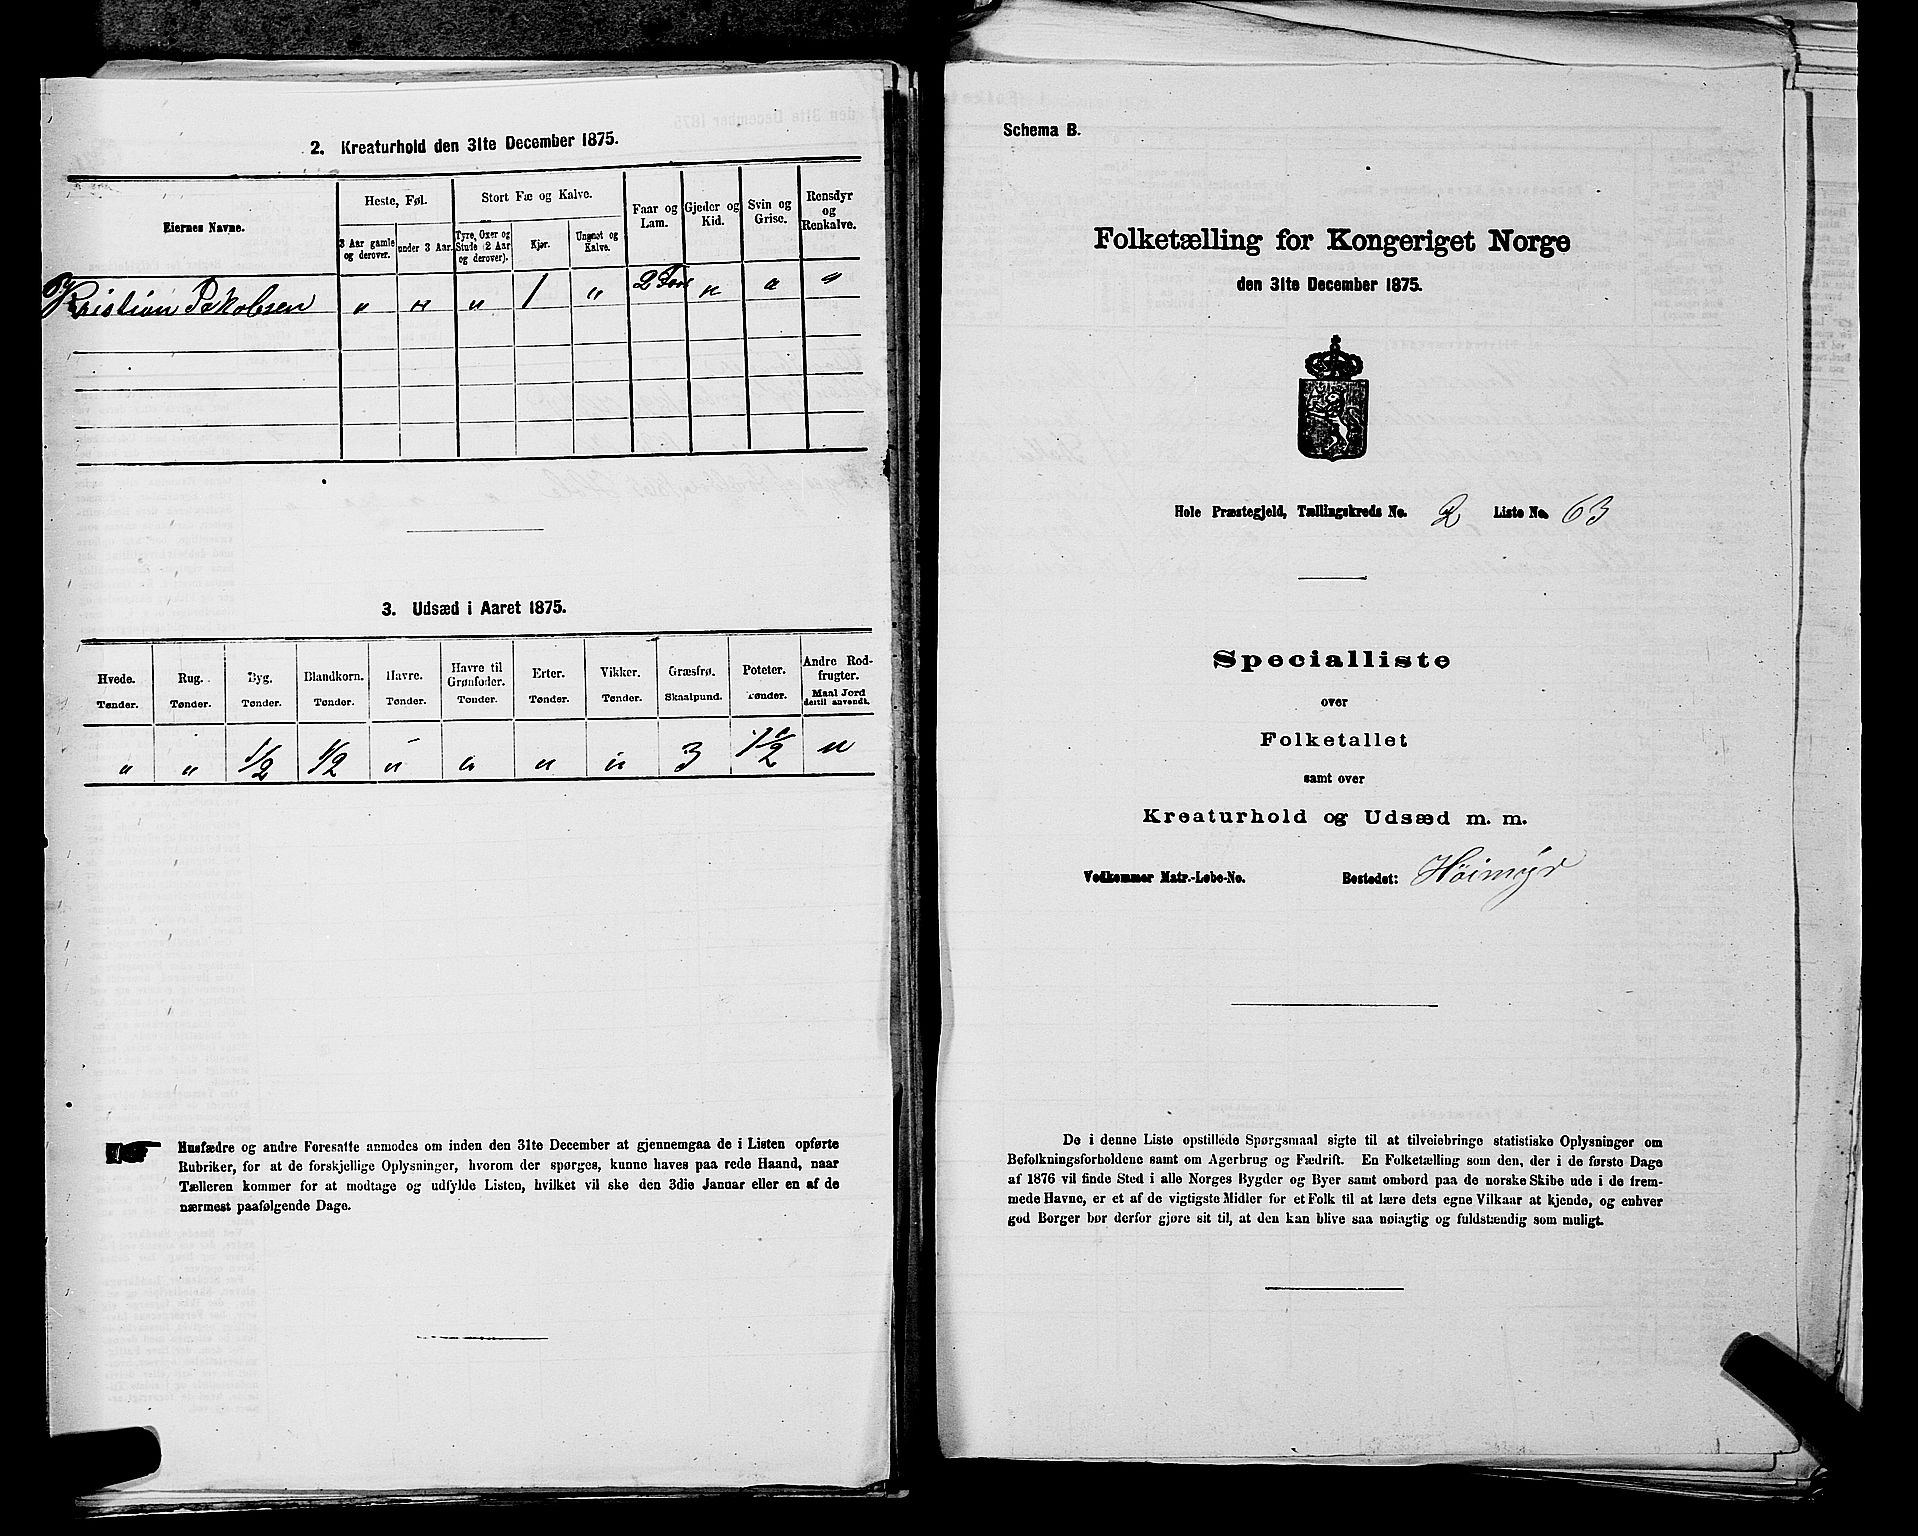 2. Kreaturhold den 31te December 1875.
Eiernes Navne.
Heste, Føl.
Stort Fæ og Kalve.
Faar og Lam.
Gjeder og Kid.
Svin og Grise.
Rensdyr og Renkalve.
3 Aar gamle og derover.
under 3 Aar.
Tyre, Oxer og Stude (2 Aar og derover).
Kjør.
Ungnøt og Kalve.
Kristian Jakobsen " " " 1 " 2 " " "
3. Udsæd i Aaret 1875.
Hvede. Rug. Byg. Blandkorn. Havre. Havre til Grønfoder. Erter. Vikker. Græsfrø. Poteter. Andre Rodfrugter.
Tønder. Tønder. Tønder. Tønder. Tønder. Tønder. Tønder. Tønder. Skaalpund. Tønder. Maal Jord dertil anvendt.
" " 1/2 1/2 " " " " 3 1 1/2 "
Husfædre og andre Foresatte anmodes om inden den 31te December at gjennemgaa de i Listen opførte
Rubriker, for at de forskjellige Oplysninger, hvorom der spørges, kunne haves paa rede Haand, naar
Tælleren kommer for at modtage og udfylde Listen, hvilket vil ske den 3die Januar eller en af de
nærmest paafølgende Dage.
Schema B.
Folketælling for Kongeriget Norge
den 31te December 1875.
Hole Præstegjeld, Tællingskreds No. 2 Liste No. 63
Specialliste
over
Folketallet
samt over
Kreaturhold og Udsæd m. m.
Vedkommer Matr.-Løbe-No. Bostedet: Höimyr
De i denne Liste opstillede Spørgsmaal sigte til at tilveiebringe statistiske Oplysninger om
Befolkningsforholdene samt om Agerbrug og Fædrift. En Folketælling som den, der i de første Dage
af 1876 vil finde Sted i alle Norges Bygder og Byer samt ombord paa de norske Skibe ude i de frem-
mede Havne, er et af de vigtigste Midler for et Folk til at lære dets egne Vilkaar at kjende, og enhver
god Borger bør derfor gjøre sit til, at den kan blive saa nøiagtig og fuldstændig som muligt.